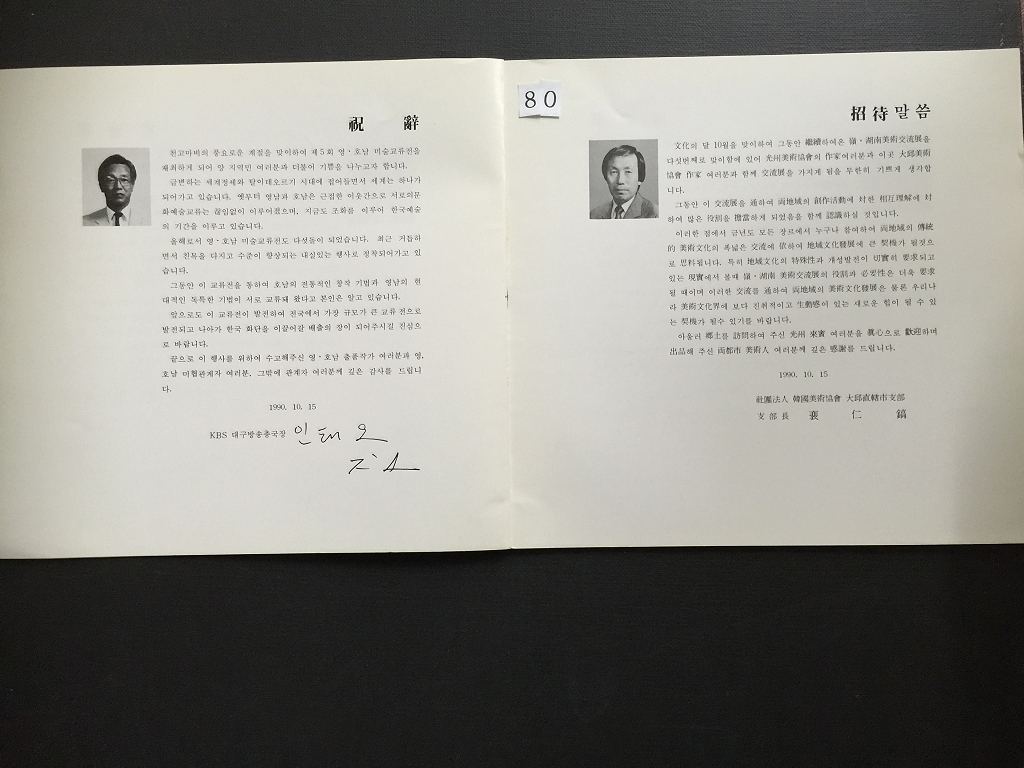 祝 辭
천고마비의 풍요로운 계절을 맞이하여 제5회 영·호남 미술교류전을
개최하게 되어 양 지역민 여러분과 더불어 기쁨을 나누고자 합니다.
급변하는 세계정세와 탈이데오르기 시대에 접어들면서 세계는 하나가
되어가고 있습니다. 옛부터 영남과 호남은 근접한 이웃간으로 서로의문
화예술교류는 끊임없이 이루어졌으며, 지금도 조화를 이루어 한국예술
의 기간을 이루고 있습니다.
올해로서 영·호남 미술교류전도 다섯돌이 되었습니다. 최근 거듭하
면서 친목을 다지고 수준이 향상되는 내실있는 행사로 정착되어가고 있
습니다.
그동안 이 교류전을 통하여 호남의 전통적인 창작 기법과 영남의 현
대적인 독특한 기법이 서로 교류돼 왔다고 본인은 알고 있습니다.
앞으로도 이 교류전이 발전하여 전국에서 가장 규모가 큰 교류전으로
발전되고 나아가 한국 화단을 이끌어갈 배출의 장이 되어주시길 진심으
로 바랍니다.
끝으로 이 행사를 위하여 수고해주신 영·호남 출품작가 여러분과 영,
호남 미협관계자 여러분, 그밖에 관계자 여러분께 깊은 감사를 드립니
다.
1990. 10. 15
KBS 대구방송총국장 인태오
80
招待말씀
文化의 달 10월을 맞이하여 그동안 繼續하여온 嶺·湖南美術交流展을
다섯번째로 맞이함에 있어 光州美術協會의 作家여러분과 이곳 大邱美術
協會 作家 여러분과 함께 交流展을 가지게 됨을 무한히 기쁘게 생각합
니다.
그동안 이 交流展을 通하여 両地域의 創作活動에 対한 相互理解에 対
하여 많은 役割을 擔當하게 되었음을 함께 認識하실 것입니다.
이러한 점에서 금년도 모든 장르에서 누구나 참여하여 両地域의 傳統
的 美術文化의 폭넓은 交流에 依하여 地域文化發展에 큰 契機가 될것으
로 思料됩니다. 특히 地域文化의 特殊性과 개성발전이 切實히 要求되고
있는 現實에서 볼때 嶺·湖南 美術交流展의 役割과 必要性은 더욱 要求
될 때이며 이러한 交流를 通하여 両地域의 美術文化發展은 물론 우리나
라 美術文化界에 보다 진취적이고 生動感이 있는 새로운 힘이 될 수 있
는 契機가 될수 있기를 바랍니다.
아울러 鄕土를 訪問하여 주신 光州 來賓 여러분을 眞心으로 歡迎하며
出品해 주신 両都市 美術人 여러분께 깊은 感謝를 드립니다.
1990. 10. 15
社團法人 韓國美術協會 大邱直轄市支部
支部長 裵 仁 鎬